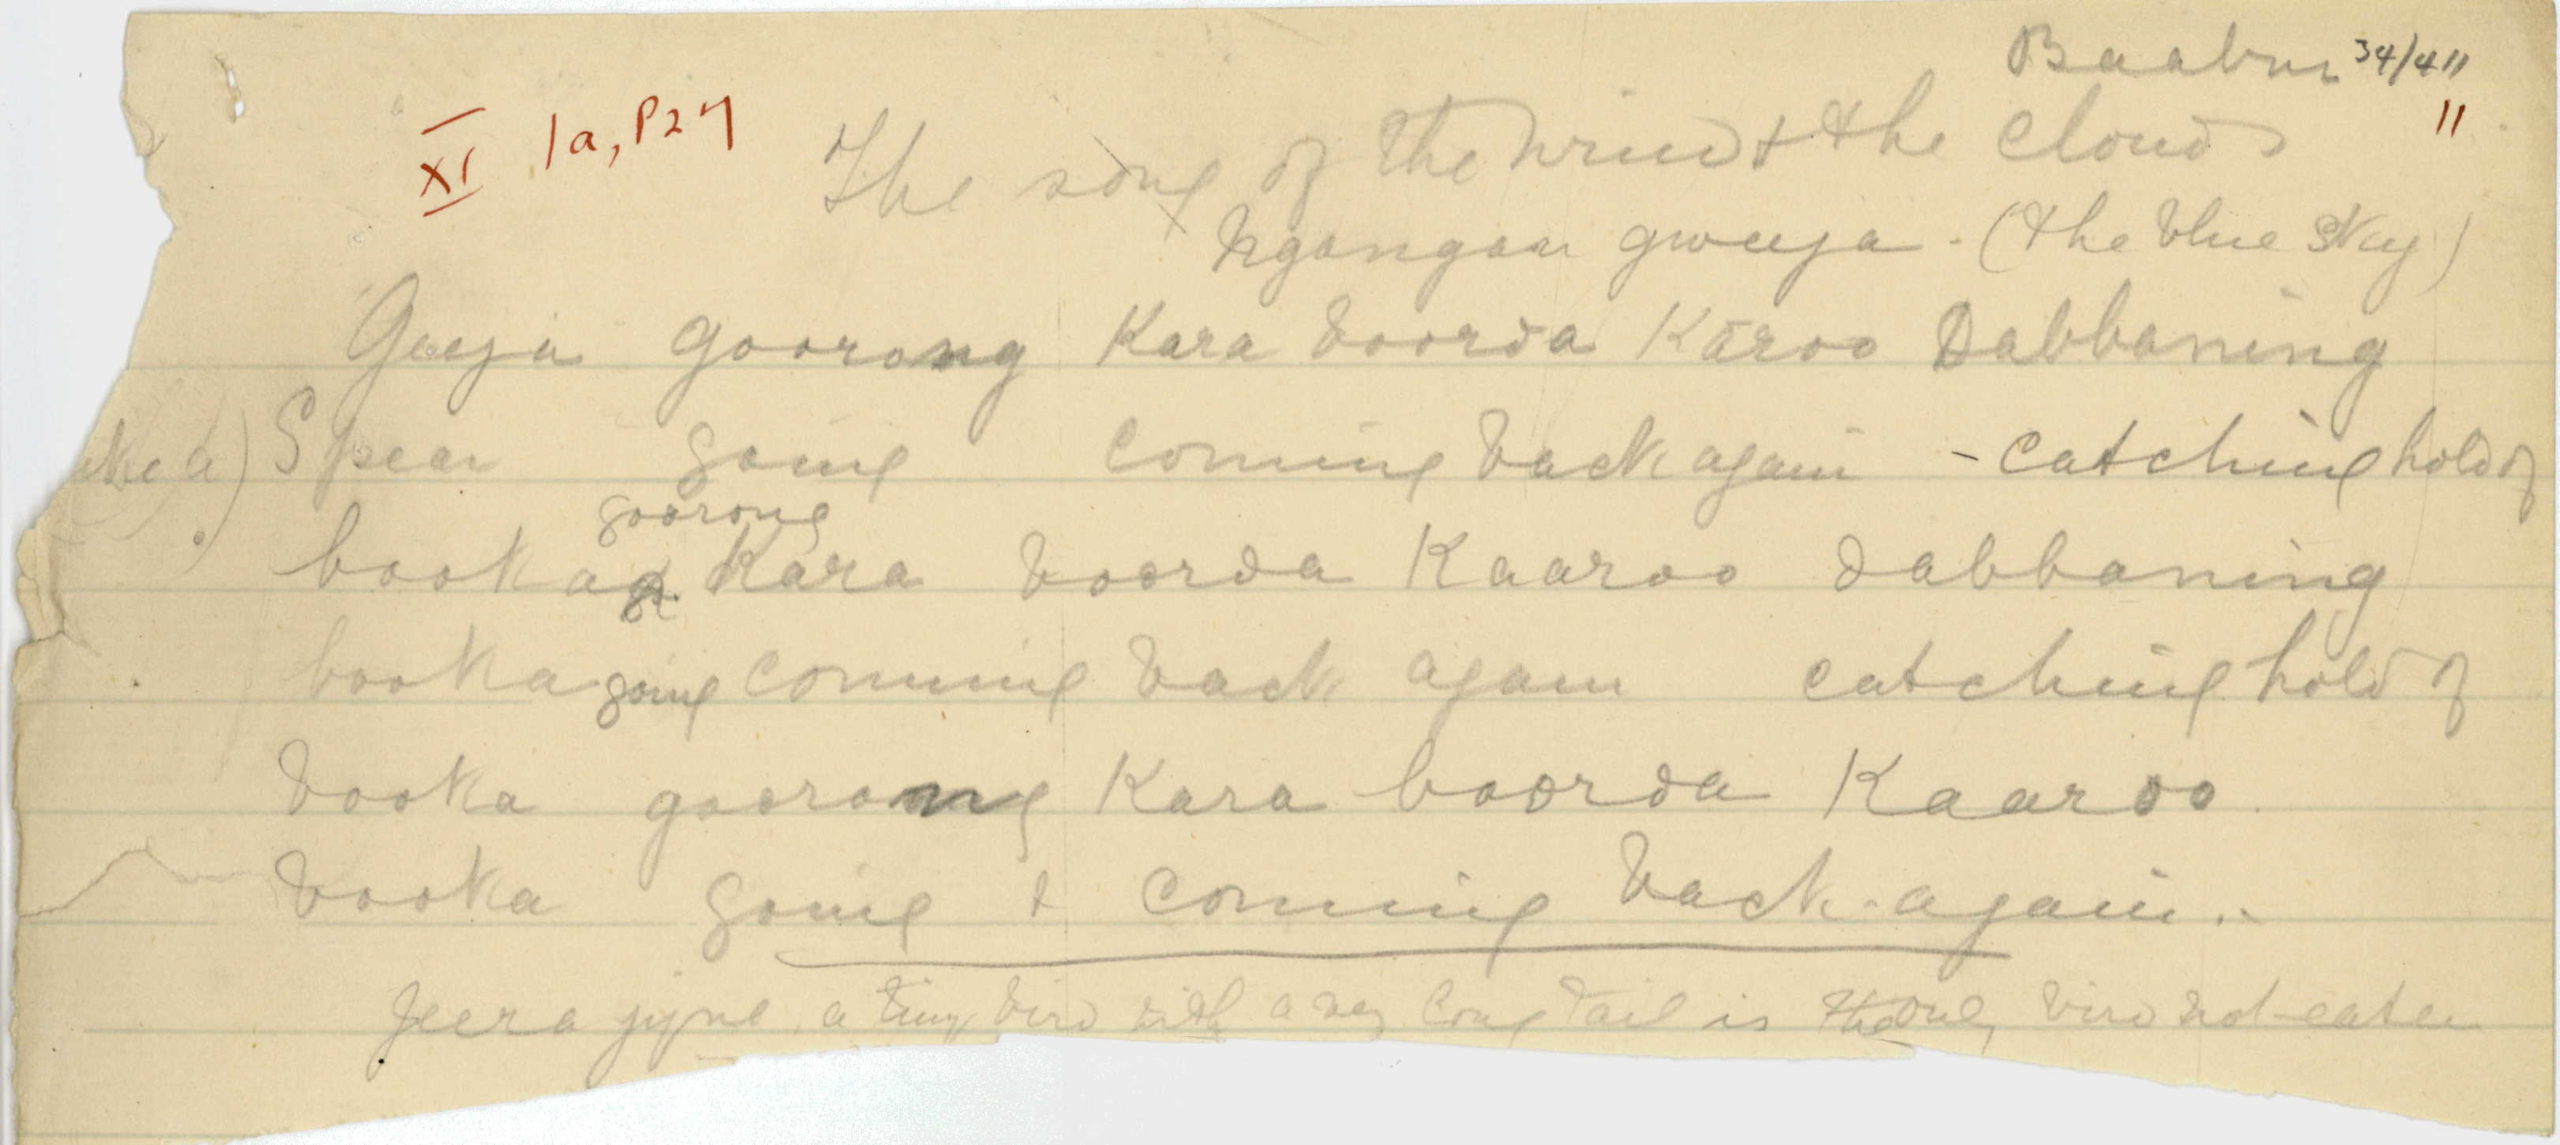 Baabur 34/411
XI 1a, P27
11
The song of the wind & the clouds
Ngangan gweeja - (the blue sky)
Geeja goorong Kara boorda Karoo Dabbaning
like a) Spear going coming back again - catching hold of
goorong
booka Kara boorda Kaaroo dabbaning
booka going coming back again catching hold of
booka goorong Kara boorda Kaaroo
booka going & coming back again.
Jeerajyne a tiny bird with a very long tail is the only bird not eaten